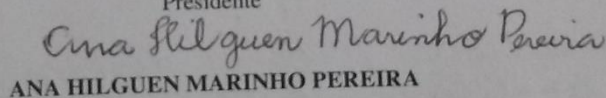 Presidente
Ana Hilguen Marinho Pereira
ANA HILGUEN MARINHO PEREIRA